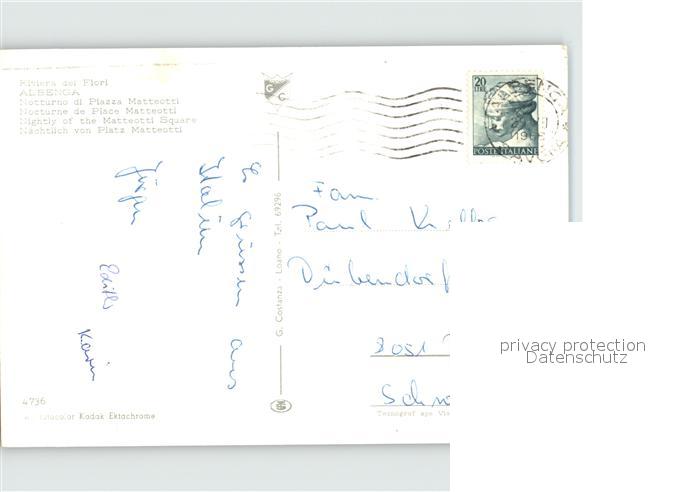 Riviera dei Fiori
ALBENGA
Notturno di Piazza Matteotti
Nocturne de Place Matteotti
Nightly of the Matteotti Square
Nächtlich von Platz Matteotti
G C
20
LIRE
POSTE ITALIANE
ALBENGA
G. Costanza - Loano - Tel. 69296
Grüssen aus
Italien
Jürgen
Edith
Karin
Fam.
Paul
Dübendorf
8051
privacy protection
Datenschutz
4736
Kodak Ektachrome
Tecnograf spa